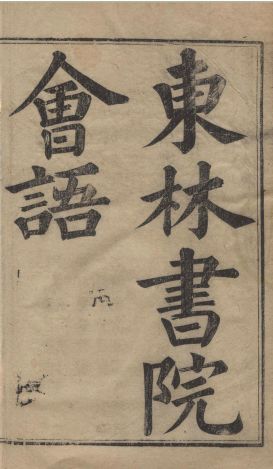 東林書院
會語